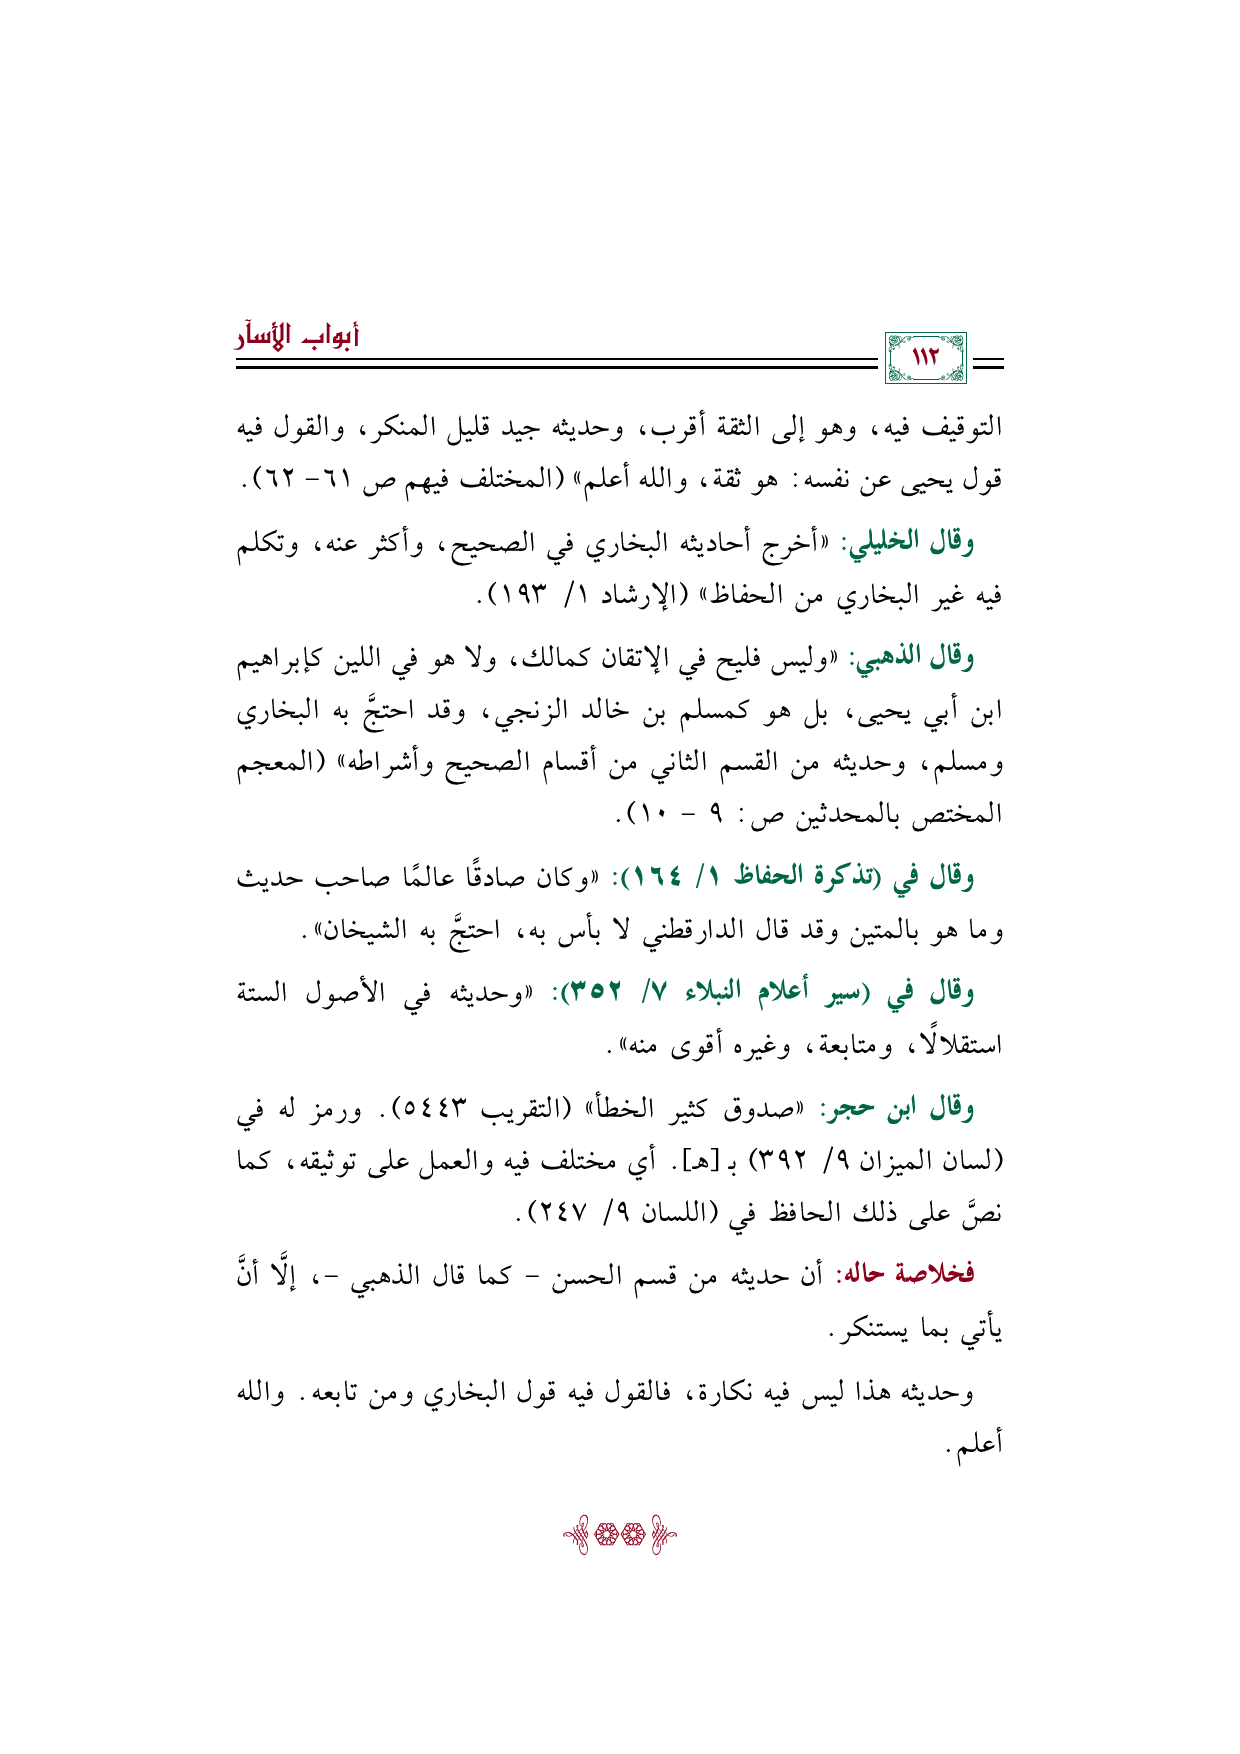 أبواب الأسآر
١١٢
التوقيف فيه، وهو إلى الثقة أقرب، وحديثه جيد قليل المنكر، والقول فيه
قول يحيى عن نفسه: هو ثقة، والله أعلم» (المختلف فيهم ص ٦١- ٦٢).
وقال الخليلي: «أخرج أحاديثه البخاري في الصحيح، وأكثر عنه، وتكلم
فيه غير البخاري من الحفاظ» (الإرشاد ١/ ١٩٣).
وقال الذهبي: «وليس فليح في الإتقان كمالك، ولا هو في اللين كإبراهيم
ابن أبي يحيى، بل هو كمسلم بن خالد الزنجي، وقد احتجَّ به البخاري
ومسلم، وحديثه من القسم الثاني من أقسام الصحيح وأشراطه» (المعجم
المختص بالمحدثين ص: ٩ - ١٠).
وقال في (تذكرة الحفاظ ١/ ١٦٤): «وكان صادقًا عالمًا صاحب حديث
وما هو بالمتين وقد قال الدارقطني لا بأس به، احتجَّ به الشيخان».
وقال في (سير أعلام النبلاء ٧/ ٣٥٢): «وحديثه في الأصول الستة
استقلالًا، ومتابعة، وغيره أقوى منه».
وقال ابن حجر: «صدوق كثير الخطأ» (التقريب ٥٤٤٣). ورمز له في
(لسان الميزان ٩/ ٣٩٢) بـ [هـ]. أي مختلف فيه والعمل على توثيقه، كما
نصَّ على ذلك الحافظ في (اللسان ٩/ ٢٤٧).
فخلاصة حاله: أن حديثه من قسم الحسن - كما قال الذهبي -، إلَّا أنَّ
يأتي بما يستنكر.
وحديثه هذا ليس فيه نكارة، فالقول فيه قول البخاري ومن تابعه. والله
أعلم.